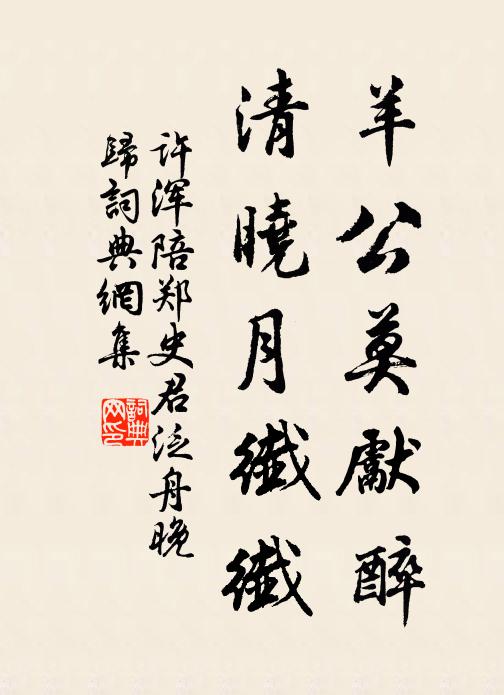 羊公莫獻醉
清曉月纖纖
许浑陪郑史君泛舟晚
歸詞典網集
詞典
网印